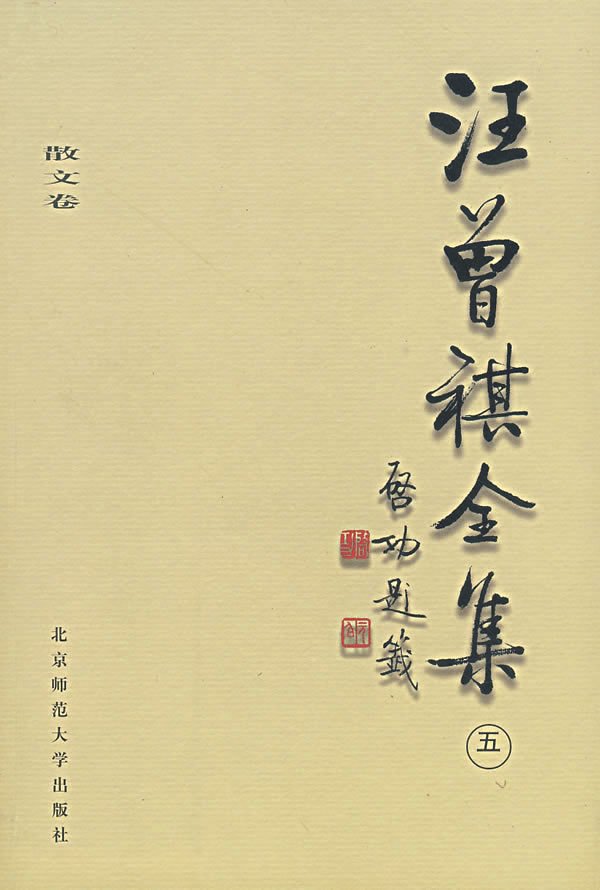 汪曾祺全集
五
启功题签
散文卷
北京师范大学出版社